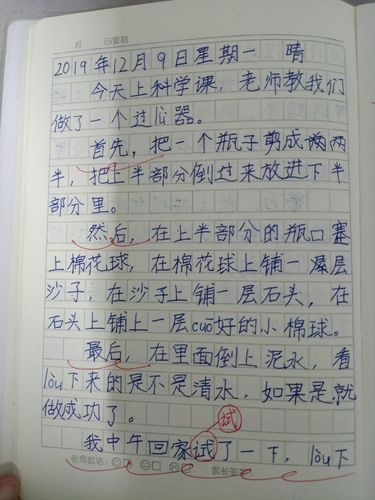 月 日 星期
2019年12月9日星期一 晴
今天上科学课，老师教我们
做了一个过心器。
首先，把一个瓶子剪成两
半，把上半部分倒过来放进下半
部分里。
然后，在上半部分的瓶口塞
上棉花球，在棉花球上铺一层
沙子，在沙子上铺一层石头，在
石头上铺上一层cuō好的小棉球。
最后，在里面倒上泥水，看
lòu下来的是不是清水，如果是就
做成功了。
试
我中午回家试了一下，lòu下
老师批语：